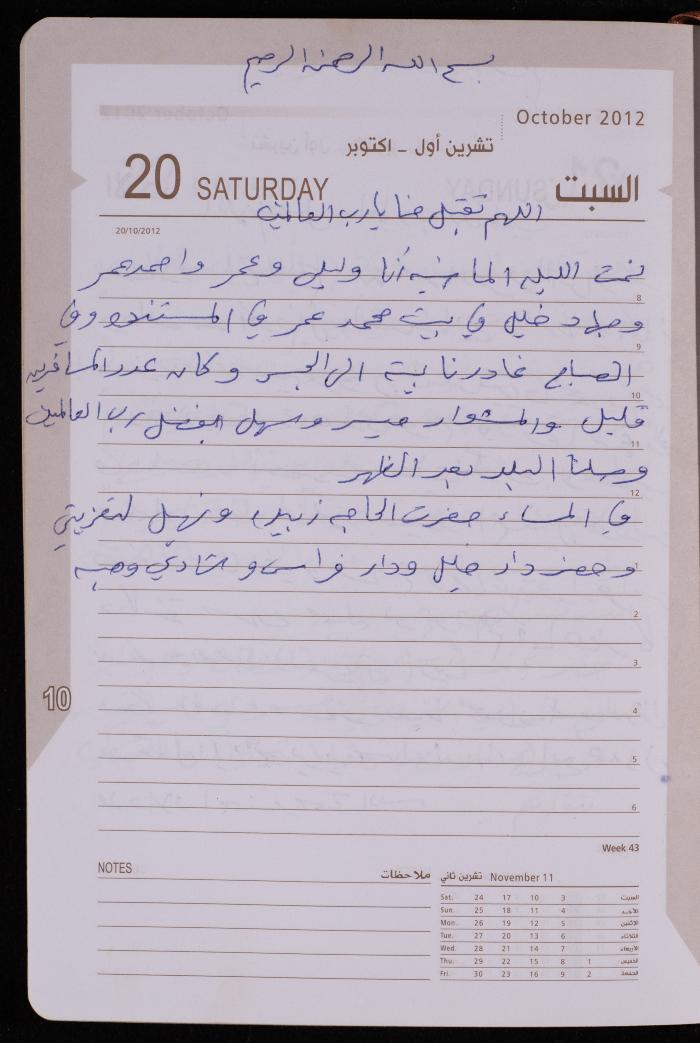 بسم الله الرحمن الرحيم
October 2012
تشرين أول - اكتوبر
20 SATURDAY السبت
اللهم تقبل منا يا رب العالمين
20/10/2012
نمت الليله الماضيه أنا وليلى وعمر واحمد عمر
8
وجهاد خليل في بيت محمد عمر في المستندوفي
9
الصباح غادرنا بيته الى الجسر وكان عدد المسافرين
10
قليل والمشوار ميسر وسهل بفضل رب العالمين
11
وصلنا البلد بعد الظهر
12
في المساء حضرت الحاجه زبيده ونهيل لتعزيتي
1
وحضر دار خليل ودار فراس و شادي وهبه
2
3
10
4
5
6
Week 43
NOTES ملاحظات
November 11 تشرين ثاني
Sat. 24 17 10 3 السبت
Sun. 25 18 11 4 الأحد
Mon. 26 19 12 5 الاثنين
Tue. 27 20 13 6 الثلاثاء
Wed. 28 21 14 7 الأربعاء
Thu. 29 22 15 8 1 الخميس
Fri. 30 23 16 9 2 الجمعة